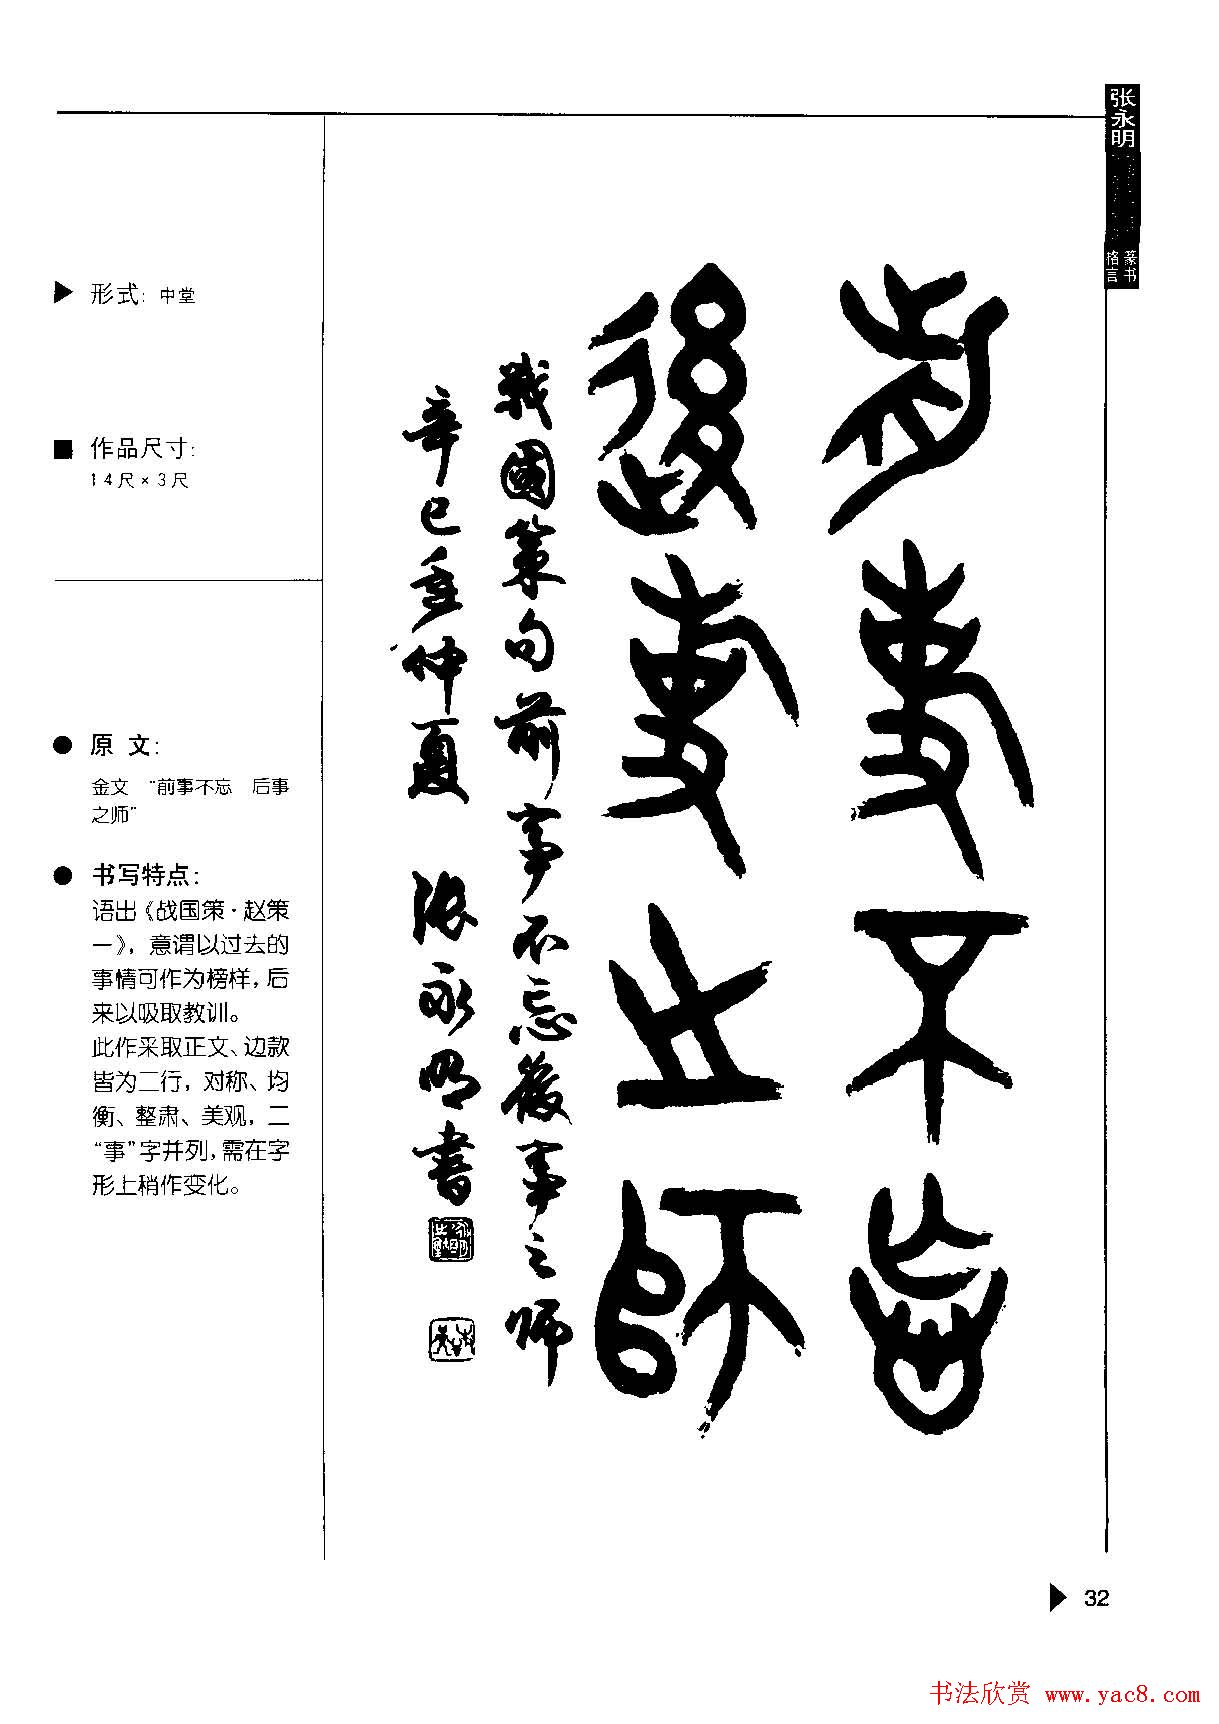 张永明
篆书
格言
形式：中堂
作品尺寸：
14尺×3尺
原 文：
金文 “前事不忘 后事
之师”
书写特点：
语出《战国策·赵策
一》，意谓以过去的
事情可作为榜样，后
来以吸取教训。
此作采取正文、边款
皆为二行，对称、均
衡、整肃、美观，二
“事”字并列，需在字
形上稍作变化。
前事不忘
後事之师
戰國策句前事不忘後事之师
辛巳年仲夏 张永明書
32
书法欣赏 www.yac8.com